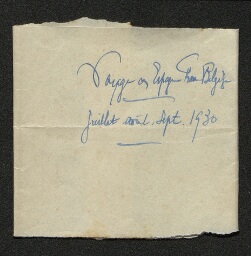 Voyage en Espagne Belgique
Juillet août. Sept. 1930